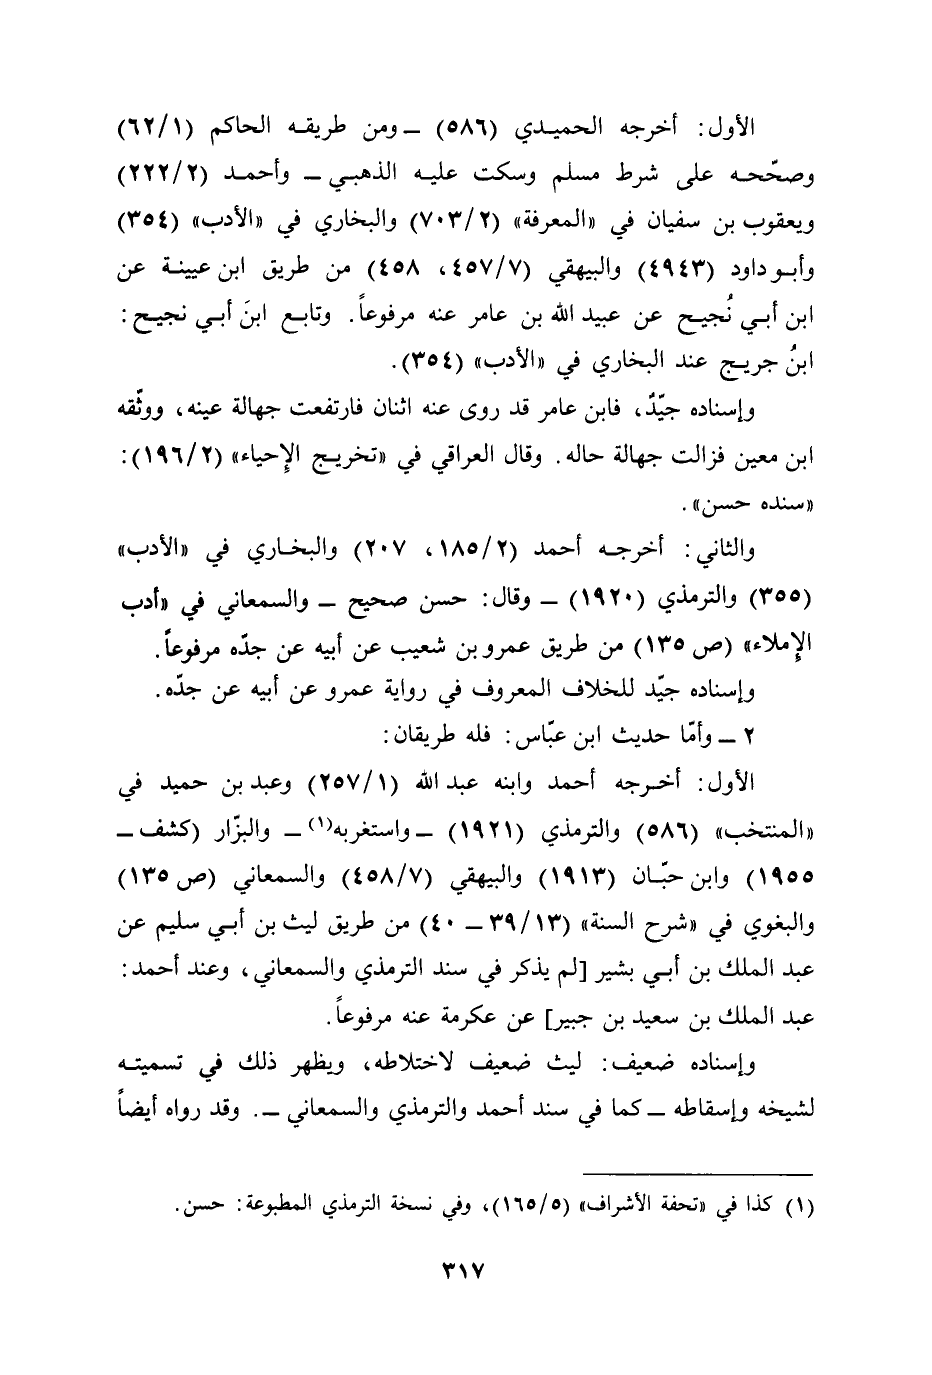 الأول: أخرجه الحميدي (٥٨٦) ــ ومن طريقه الحاكم (٦٢/١)
وصحّحه على شرط مسلم وسكت عليه الذهبي ــ وأحمد (٢٢٢/٢)
ويعقوب بن سفيان في «المعرفة» (٧٠٣/٢) والبخاري في «الأدب» (٣٥٤)
وأبو داود (٤٩٤٣) والبيهقي (٤٥٧/٧، ٤٥٨) من طريق ابن عيينة عن
ابن أبي نُجيح عن عبيد الله بن عامر عنه مرفوعاً. وتابع ابنَ أبي نجيح:
ابنُ جريج عند البخاري في «الأدب» (٣٥٤).
وإسناده جيّدٌ، فابن عامر قد روى عنه اثنان فارتفعت جهالة عينه، ووثّقه
ابن معين فزالت جهالة حاله. وقال العراقي في «تخريج الإحياء» (١٩٦/٢):
«سنده حسن».
والثاني: أخرجه أحمد (١٨٥/٢، ٢٠٧) والبخاري في «الأدب»
(٣٥٥) والترمذي (١٩٢٠) ــ وقال: حسن صحيح ــ والسمعاني في «أدب
الإملاء» (ص ١٣٥) من طريق عمرو بن شعيب عن أبيه عن جدّه مرفوعاً.
وإسناده جيّد للخلاف المعروف في رواية عمرو عن أبيه عن جدّه.
٢ ــ وأمّا حديث ابن عبّاس: فله طريقان:
الأول: أخرجه أحمد وابنه عبد الله (٢٥٧/١) وعبد بن حميد في
«المنتخب» (٥٨٦) والترمذي (١٩٢١) ــ واستغربه(١) ــ والبزّار (كشف ــ
١٩٥٥) وابن حبّان (١٩١٣) والبيهقي (٤٥٨/٧) والسمعاني (ص ١٣٥)
والبغوي في «شرح السنة» (٣٩/١٣ ــ ٤٠) من طريق ليث بن أبي سليم عن
عبد الملك بن أبي بشير [لم يذكر في سند الترمذي والسمعاني، وعند أحمد:
عبد الملك بن سعيد بن جبير] عن عكرمة عنه مرفوعاً.
وإسناده ضعيف: ليث ضعيف لاختلاطه، ويظهر ذلك في تسميته
لشيخه وإسقاطه ــ كما في سند أحمد والترمذي والسمعاني ــ. وقد رواه أيضاً
(١) كذا في «تحفة الأشراف» (١٦٥/٥)، وفي نسخة الترمذي المطبوعة: حسن.
٣١٧